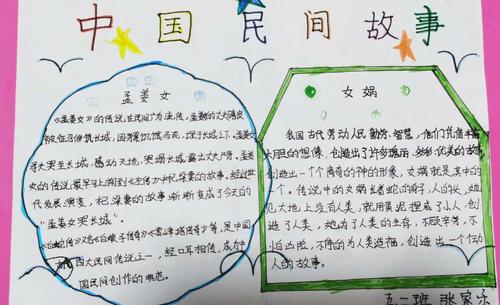 中国民间故事
孟姜女
《孟姜女》的传说,在民间广为流传,孟姜的丈夫
被抓去修筑长城,因劳累饥饿而死,埋于长城下。孟姜
寻夫哭至长城,感动天地,哭塌长城露出丈夫尸骨。孟姜
女的传说最早可上溯到《左传》中杞梁妻的故事,经过世
代发展、演变,杞梁妻的故事渐渐变成了今天的
“孟姜女哭长城”。
《白蛇传》又名《白娘子传奇》《雷峰塔传奇》等,是中国
四大民间传说之一,经口耳相传,成为中
国民间创作的典范。
女娲
我国古代劳动人民勤劳、智慧,他们凭借丰富
大胆的想像,创造出了许多瑰丽、多彩、优美的故事
创造出一个个离奇的神的形象,女娲就是其中的
一个。传说中的女娲长着蛇的身,人的头,她
见大地上没有人类,就用黄泥捏成了小人,创
造了人类,她为了人类的生存,不顾辛劳,不
怕凶险,不停的为人类造福,创造出一个个动
人的故事。
五一班 张家